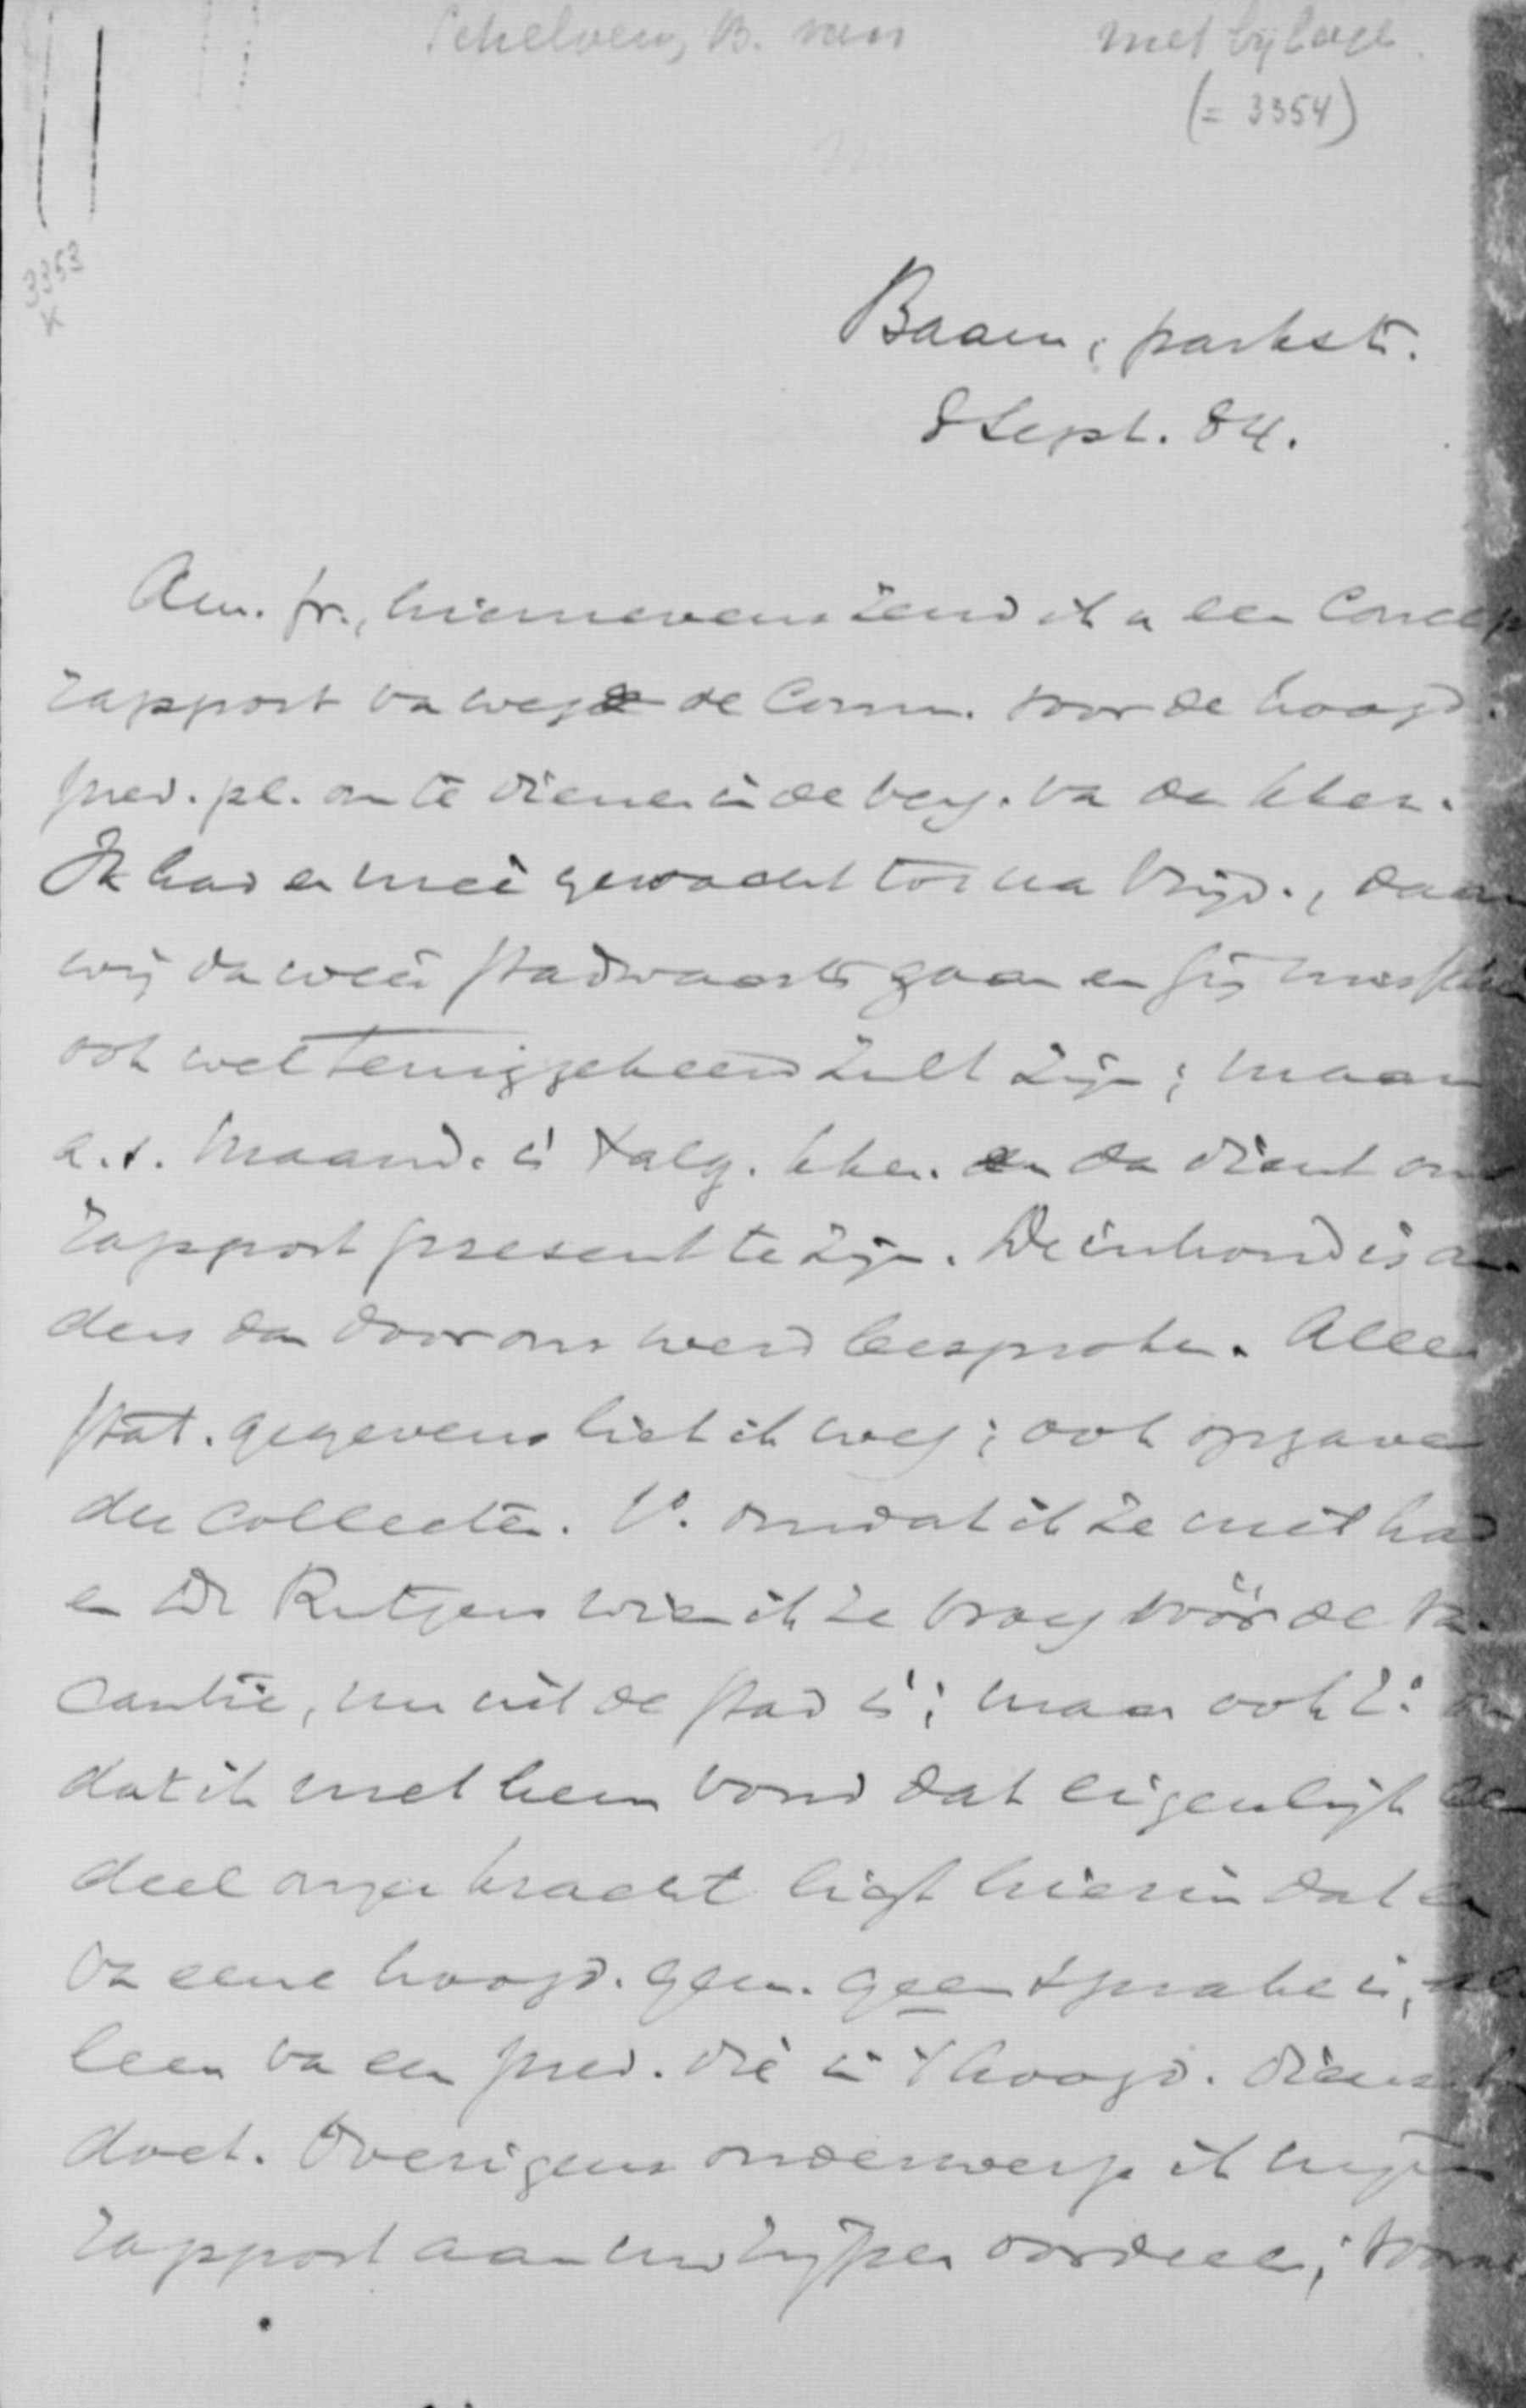 Schelven, B. van
met bijlage.
(= 3354)
3353
x
Baarn, parkstr.
8 Sept. 84.
Am. fr., hiernevens zend ik u een Concep
rapport va wege de Comm. voor de hoogd.
pred. pl. om te dienen in de verg. va den kker.
Ik had er mee gewacht tot na Vrijd., daar
wij da weer stadwaarts gaan en gij misschien
ook wel teruggekeerd zult zijn; maar
a.s. Maand. is 't alg. kker. en da dient ons
rapport present te zijn. De inhoud is an
ders dan door ons werd besproken. Alle
stat. gegevens liet ik weg; ook opgave
der collecten. 1o. omdat ik ze niet had
en Dr Rutgers wien ik ze vroeg vóór de va
cantie, nu uit de stad is; maar ook 2o om
dat ik met hem vond dat eigenlijk een
deel onzer kracht ligt hierin dat er
va eene hoogd. gem. geen sprake is, al
leen va een pred. die in 't hoogd. dienst
doet. Overigens onderwerp ik mijn
rapport aan uw rijper oordeel;